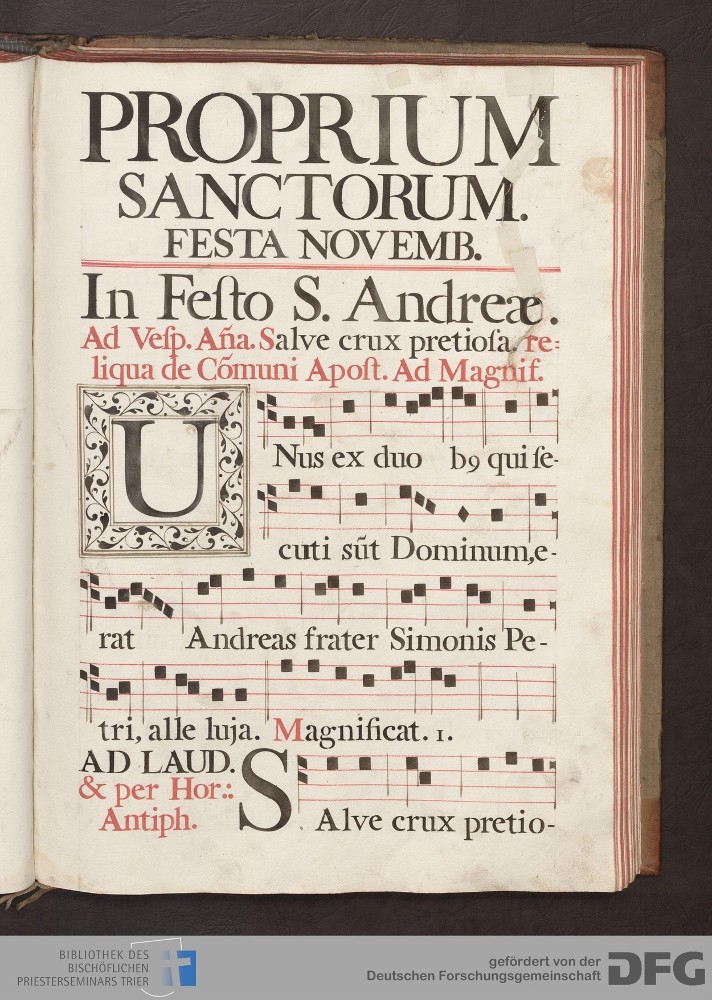 PROPRIUM
SANCTORUM.
FESTA NOVEMB.
In Feſto S. Andreæ.
Ad Veſp. Aña. Salve crux pretioſa. re:
liqua de Cõmuni Apoſt. Ad Magnif.
UNus ex duo b9 qui ſe-
cuti sũt Dominum, e-
rat Andreas frater Simonis Pe-
tri, alle luja. Magnificat. 1.
AD LAUD.
& per Hor::
Antiph.
SAlve crux pretio-
BIBLIOTHEK DES
BISCHÖFLICHEN
PRIESTERSEMINARS TRIER
gefördert von der
Deutschen Forschungsgemeinschaft
DFG